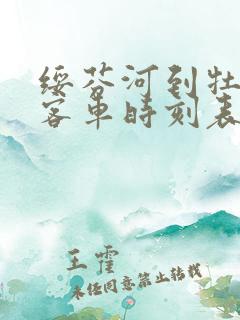 绥芬河到牡
客车时刻表
王霍
未经同意禁止转载